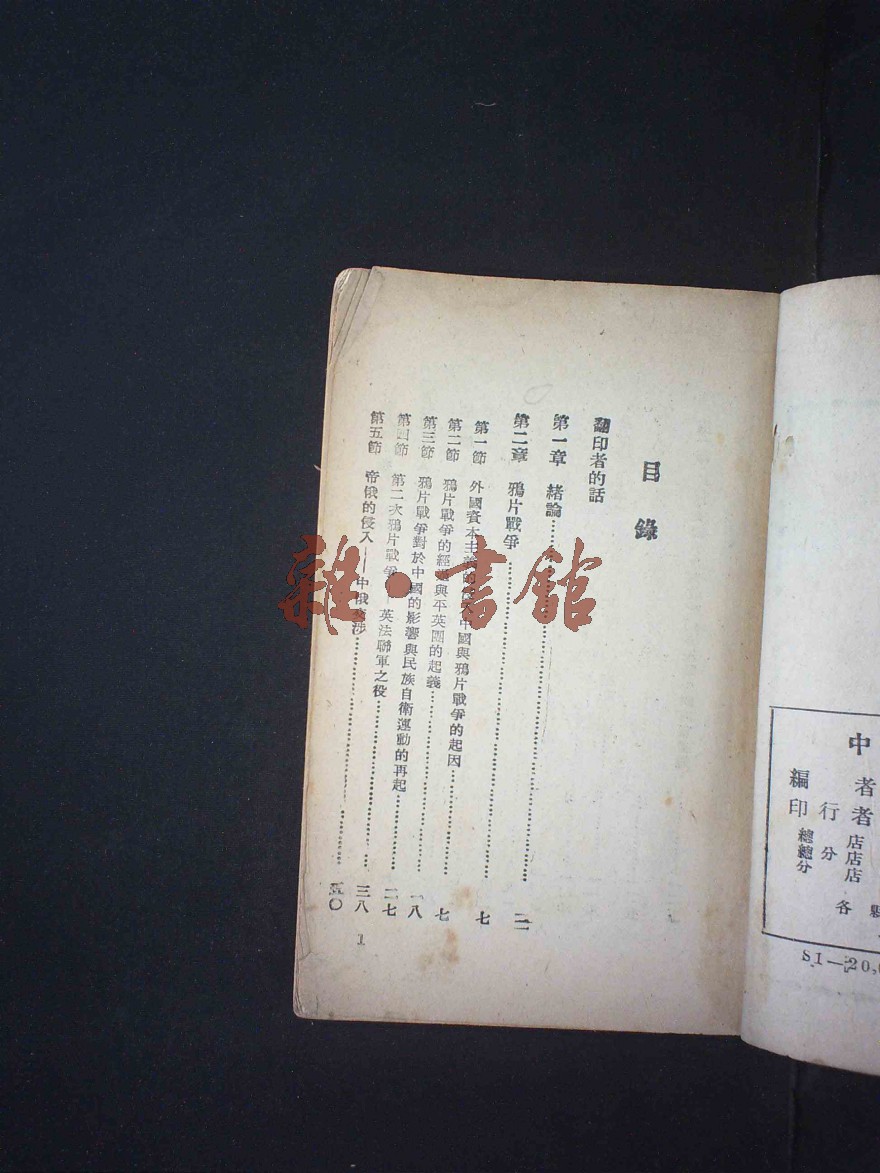 中
編 者
印 行 者
總 店
總分店
分 店
各
S1—20,
目錄
翻印者的話
第一章 緒論……
第二章 鴉片戰爭……七
第一節 外國資本主義的 中國與鴉片戰爭的起因……七
第二節 鴉片戰爭的經過與平英團的起義……一八
第三節 鴉片戰爭對於中國的影響與民族自衛運動的再起……二七
第四節 第二次鴉片戰爭——英法聯軍之役……三八
第五節 帝俄的侵入——中俄交涉……五〇
1
雜·書館